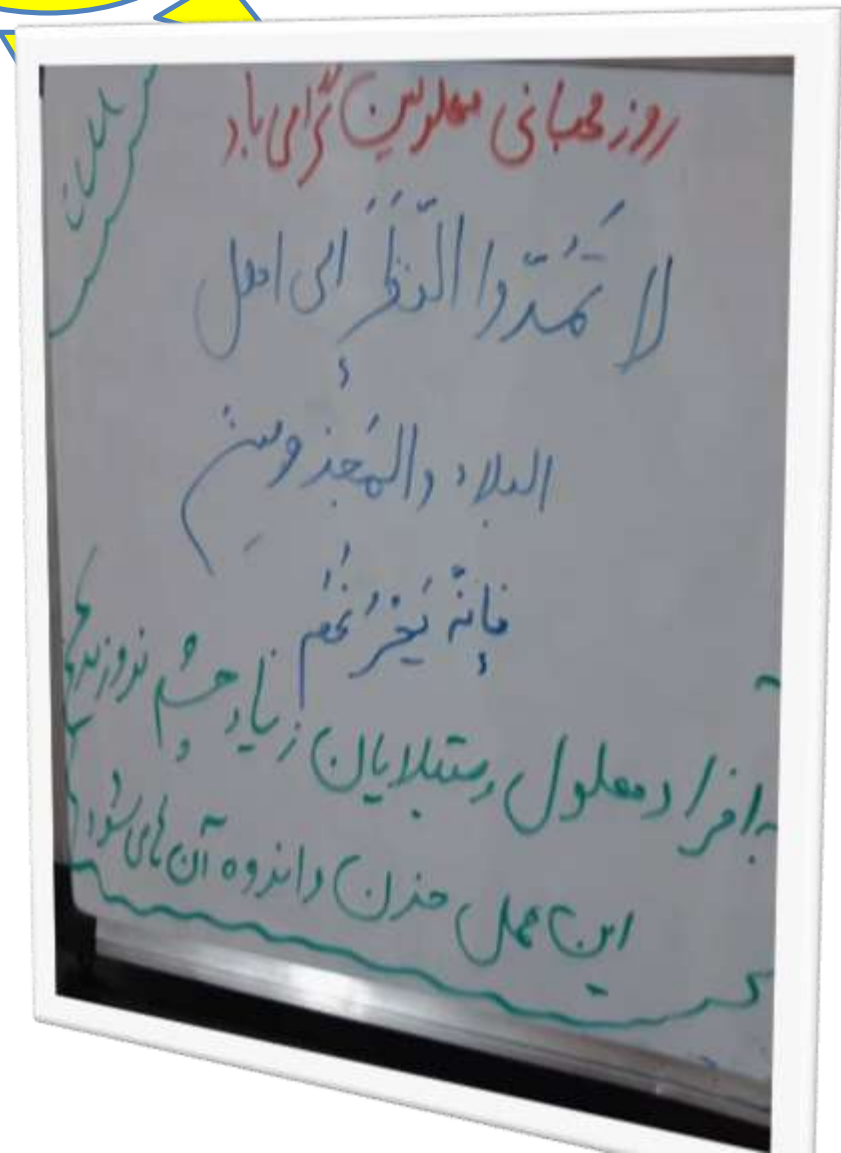 روز جهانی معلولین گرامی باد
لا تَمُدّوا النَّظَرَ إلی اهل
البلاء والمَجذومینَ
فإنّه یَحْزُنُهُم
به افراد معلول و مبتلایان زیاد چشم ندوزید
این عمل حزن و اندوه آن ها می شود